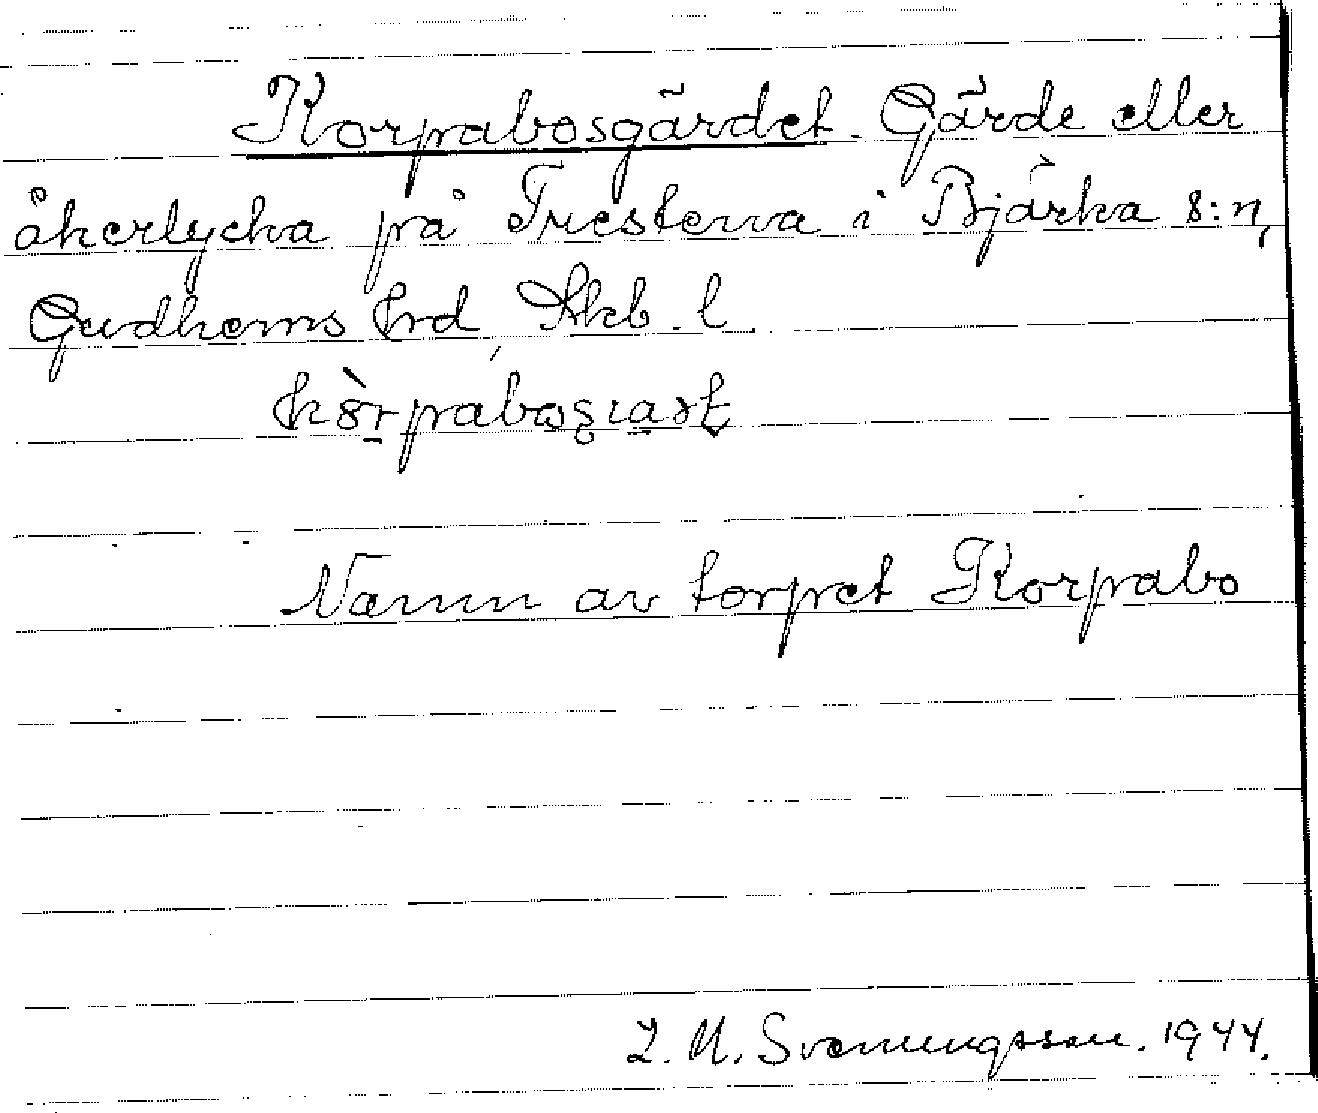 Korpabosgärdet. Gärde eller
åkerlycka på Trestena i Bjärka s:n,
Gudhems hrd, Skb. l.
Namn av torpet Korpabo
Z. M. Svenungsson. 1944.